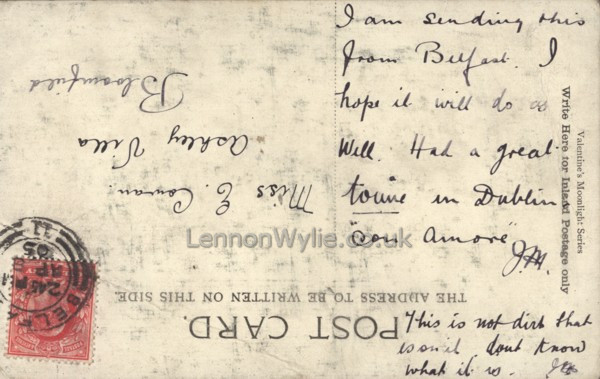 I am sending this
from Belfast. I
hope it will do as
well. Had a great
toune in Dublin
"con amore"
J.M.
This is not dirt that
is on it dont know
what it is. JM
POST CARD.
THE ADDRESS TO BE WRITTEN ON THIS SIDE.
Miss E. Cowan.
Ashley Villa
Bloomfield
Valentine's Moonlight Series
Write Here for Inland Postage only
BELFA
2.45 PM
SP
05
11
LennonWylie.co.uk